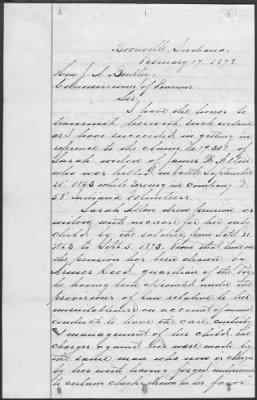 Boonville, Indiana,
February 17. 1875.
Hon. J. A. Bentley,
Commissioner of Pensions
Sir,
I have the honor to
transmit, herewith, such evidence
as I have succeeded in getting in
reference to the claim, No. 19.307. of
Sarah widow of James W. Alton
who was killed in battle September
20" 1863 while serving in company
58" Indiana Volunteers.
Sarah Alton drew pension as
widow with increase for her only
child by the soldier, from Sept. 21.
1863 to Sept. 5. 1873. Since that time
the pension has been drawn by
Reed, guardian of the boy,
he, having been appointed under the
provisions of law relative to her
on account of immoral
conduct to have the care, custody
& management of his child. The
charges against her were made by
the same man who now is charged
by her with having forged indorsement
to certain checks drawn in her favor.